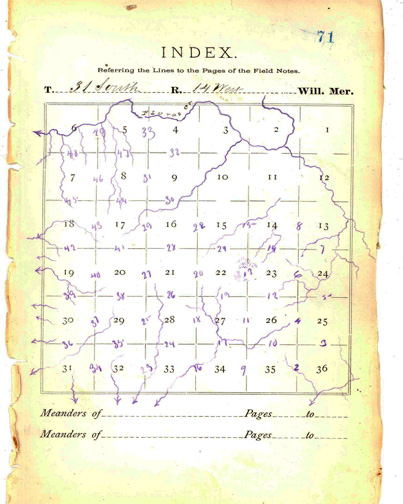 71
INDEX.
Referring the Lines to the Pages of the Field Notes.
T. 31 South R. 14 West Will. Mer.
6 5 33 4 3 2 1
32
7 46 8 31 9 10 11 12
30
18 43 17 29 16 28 15 15 14 8 13
42 41 28 21 14 7
19 40 20 27 21 20 22 13 23 6 24
39 38 26 19 12 5
30 37 29 25 28 18 27 11 26 4 25
36 35 24 17 10 3
31 34 32 23 33 16 34 9 35 2 36
Meanders of Pages to
Meanders of Pages to